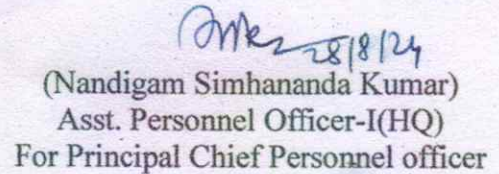 28/8/24
(Nandigam Simhananda Kumar)
Asst. Personnel Officer-I(HQ)
For Principal Chief Personnel officer